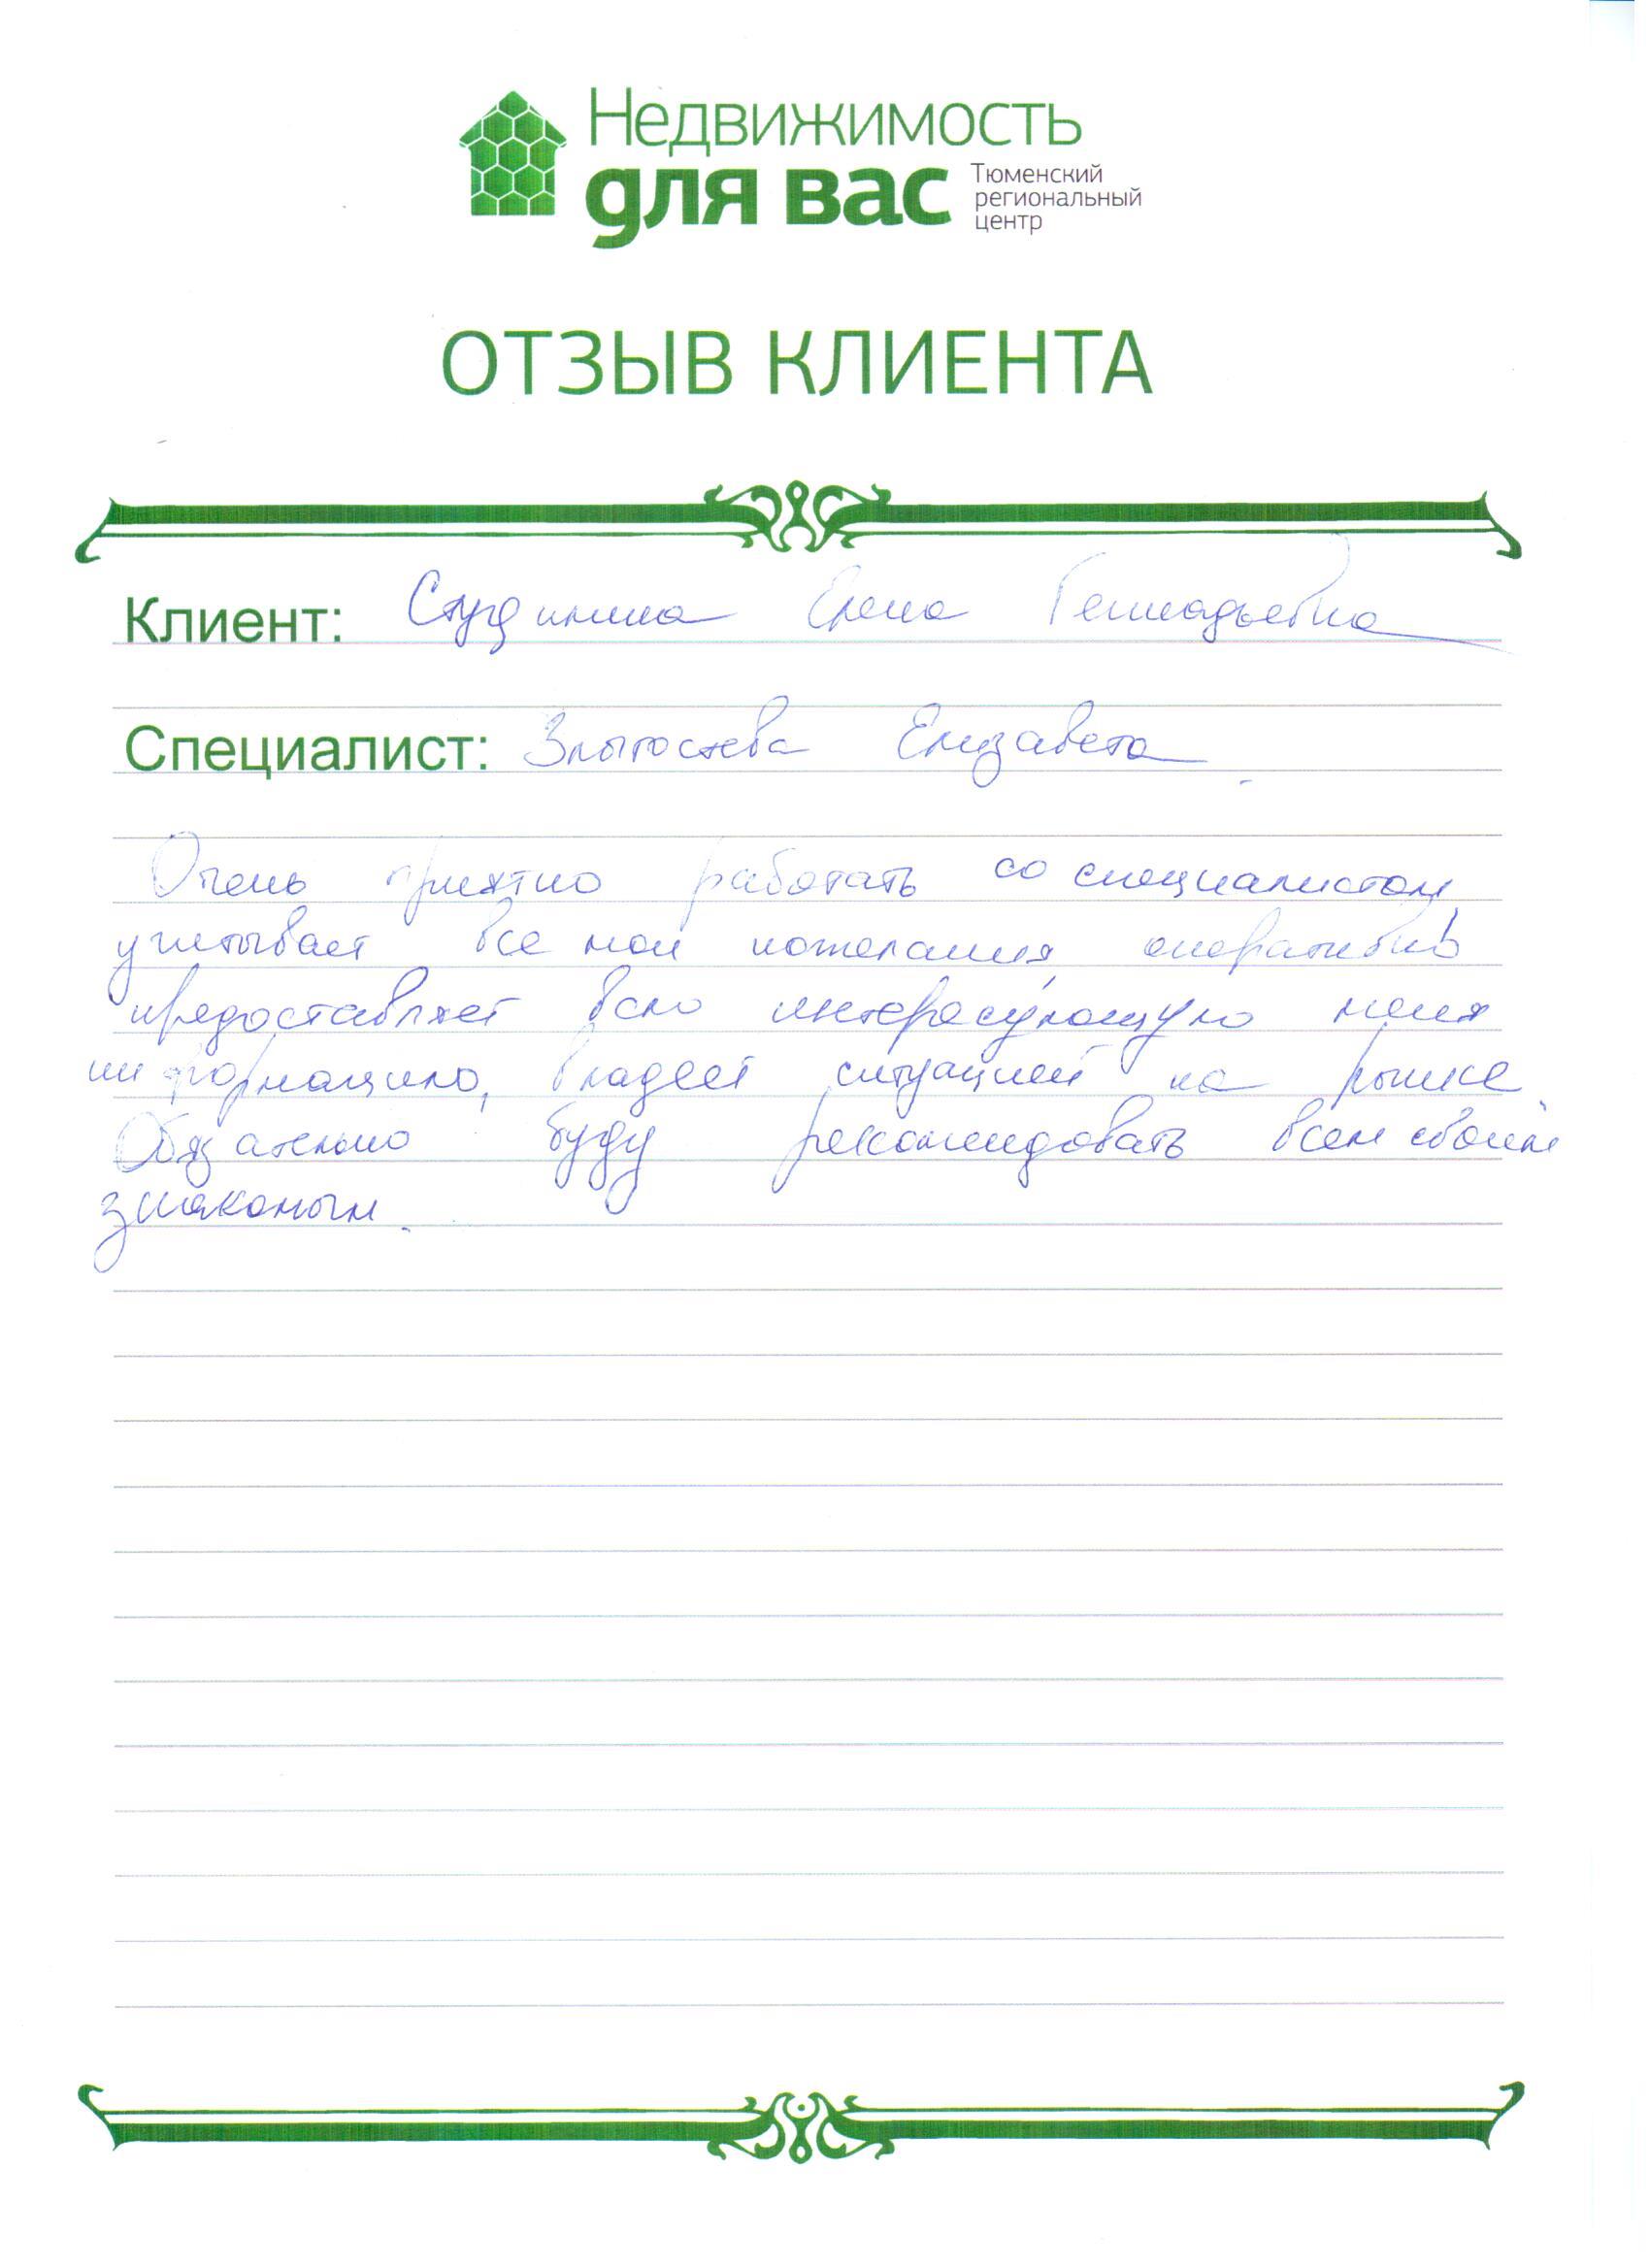 Недвижимость
для вас
Тюменский
региональный
центр
ОТЗЫВ КЛИЕНТА
Клиент: Студинина Елена Геннадьевна
Специалист: Злыгостева Елизавета.
Очень приятно работать со специалистом,
учитывает все мои пожелания, оперативно
предоставляет всю интересующую меня
информацию, владеет ситуацией на рынке.
Обязательно буду рекомендовать всем своим
знакомым.